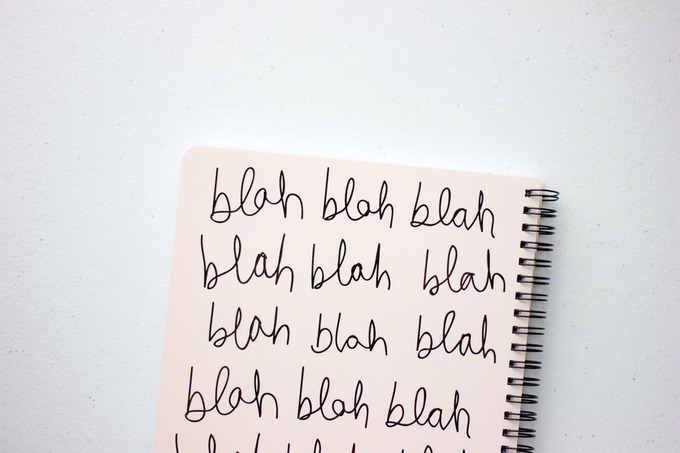 blah blah blah
blah blah blah
blah blah blah
blah blah blah
blah blah blah